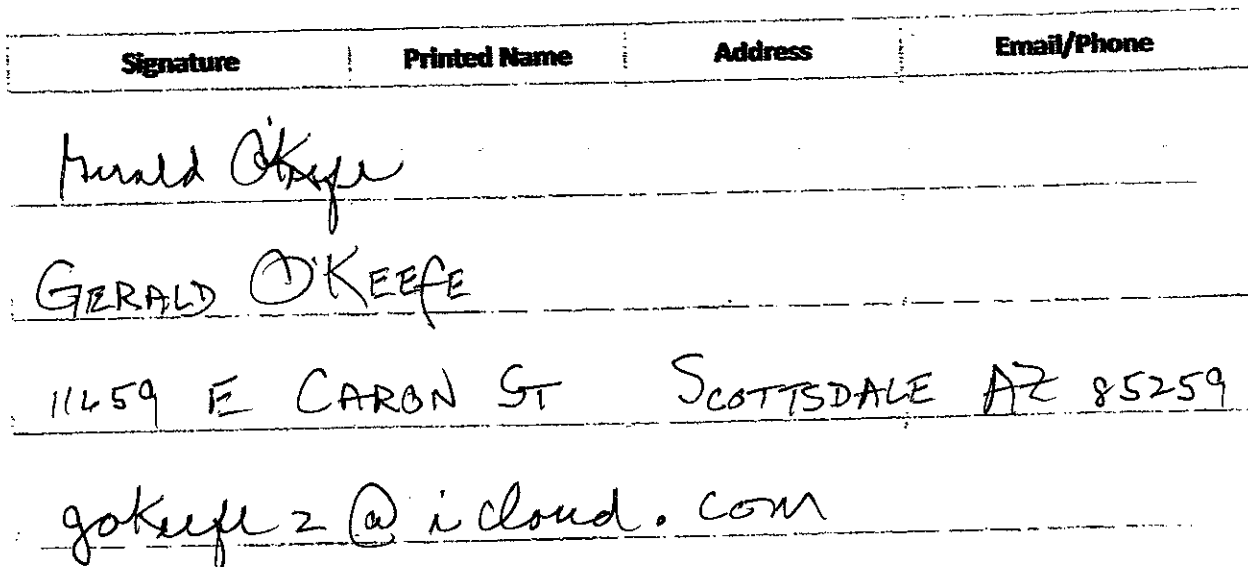 Signature Printed Name Address Email/Phone
Gerald O'Keefe
GERALD O'KEEFE
11659 E CARON ST SCOTTSDALE AZ 85259
gokeefe2@icloud.com